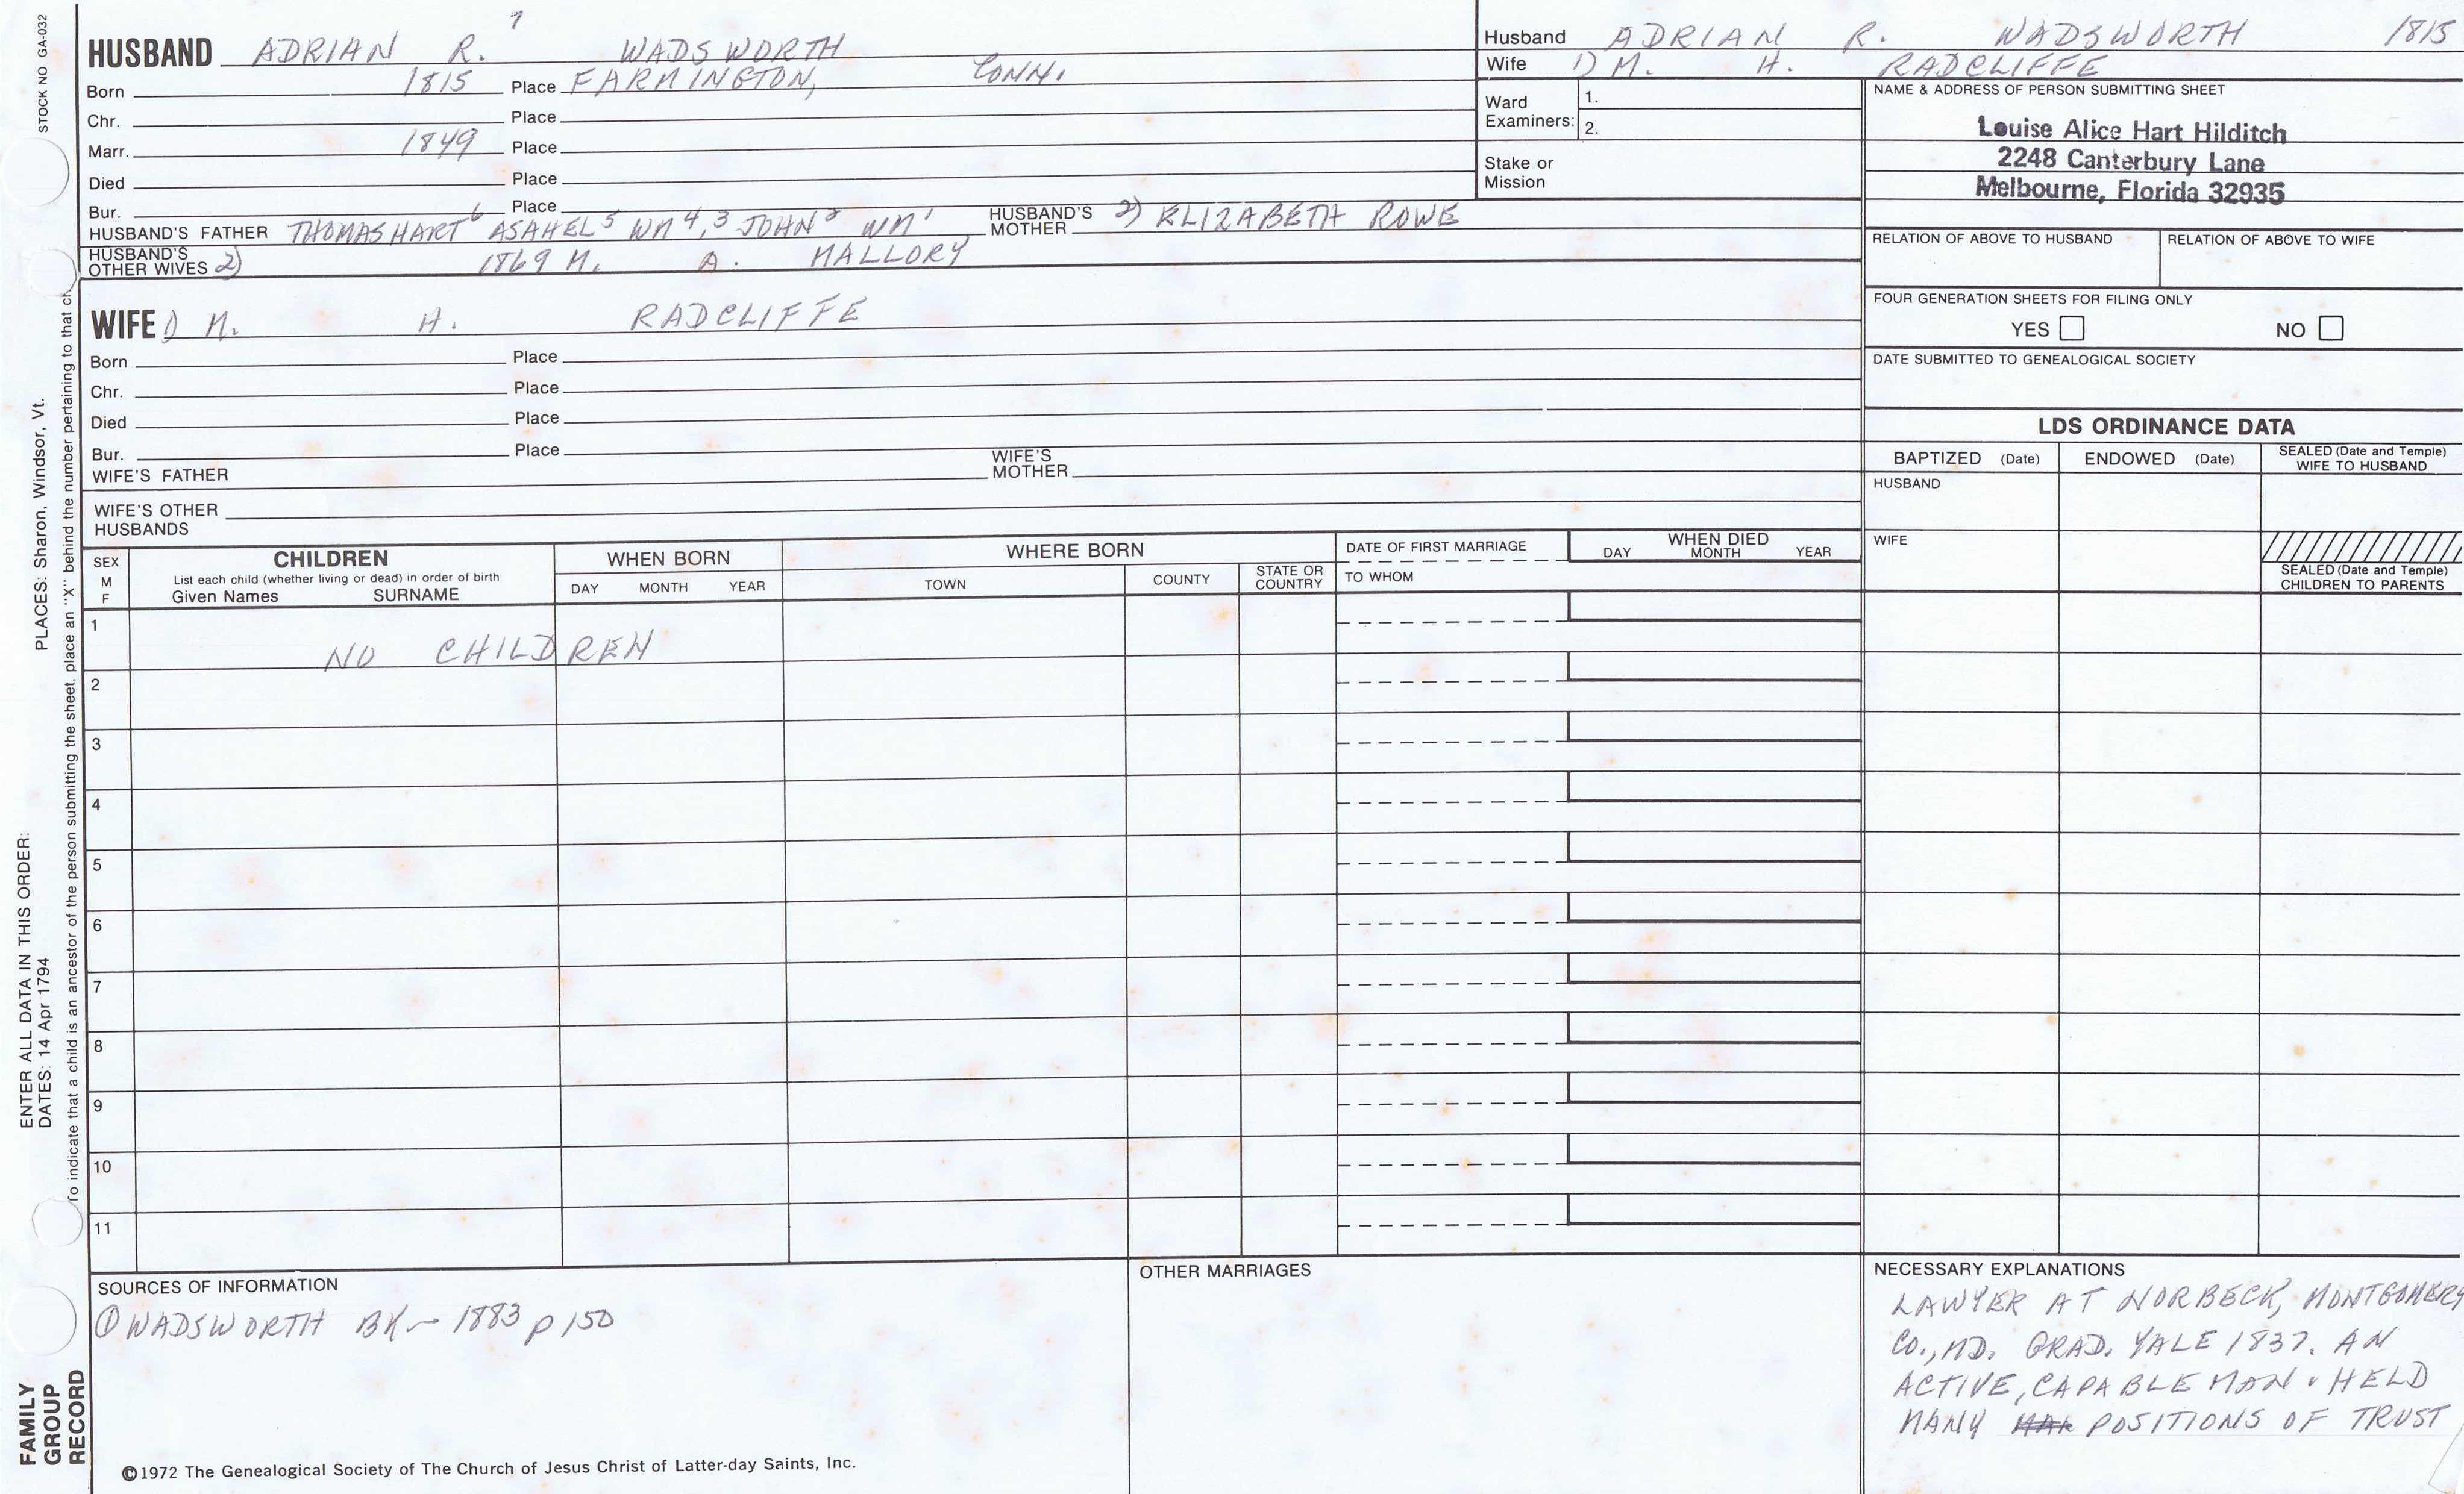 STOCK NO GA-032
PLACES: Sharon, Windsor, Vt.
ENTER ALL DATA IN THIS ORDER:
DATES: 14 Apr 1794
To indicate that a child is an ancestor of the person submitting the sheet, place an "X" behind the number pertaining to that ch
FAMILY
GROUP
RECORD
7
HUSBAND ADRIAN R. WADSWORTH
Born 1815 Place FARMINGTON, CONN.
Chr. Place
Marr. 1849 Place
Died Place
Bur. Place
HUSBAND'S FATHER THOMAS HART 6 ASAHEL 5 WM 4,3 JOHN 2 WM 1 HUSBAND'S MOTHER 2) ELIZABETH ROWE
HUSBAND'S OTHER WIVES 2) 1869 M. A. MALLORY
WIFE 1) M. H. RADCLIFFE
Born Place
Chr. Place
Died Place
Bur. Place
WIFE'S FATHER WIFE'S MOTHER
WIFE'S OTHER HUSBANDS
Husband ADRIAN R. WADSWORTH 1815
Wife 1) M. H. RADCLIFFE
Ward Examiners: 1.
2.
Stake or Mission
NAME & ADDRESS OF PERSON SUBMITTING SHEET
Louise Alice Hart Hilditch
2248 Canterbury Lane
Melbourne, Florida 32935
RELATION OF ABOVE TO HUSBAND RELATION OF ABOVE TO WIFE
FOUR GENERATION SHEETS FOR FILING ONLY
YES NO
DATE SUBMITTED TO GENEALOGICAL SOCIETY
LDS ORDINANCE DATA
BAPTIZED (Date) ENDOWED (Date) SEALED (Date and Temple) WIFE TO HUSBAND
HUSBAND
WIFE
SEALED (Date and Temple) CHILDREN TO PARENTS
SEX M F CHILDREN WHEN BORN WHERE BORN DATE OF FIRST MARRIAGE WHEN DIED
List each child (whether living or dead) in order of birth
Given Names SURNAME DAY MONTH YEAR TOWN COUNTY STATE OR COUNTRY TO WHOM DAY MONTH YEAR
1
NO CHILDREN
2
3
4
5
6
7
8
9
10
11
SOURCES OF INFORMATION
① WADSWORTH BK - 1883 p 150
OTHER MARRIAGES
NECESSARY EXPLANATIONS
LAWYER AT NORBECK, MONTGOMERY
CO., MD. GRAD. YALE 1837. AN
ACTIVE, CAPABLE MAN. HELD
MANY POSITIONS OF TRUST
©1972 The Genealogical Society of The Church of Jesus Christ of Latter-day Saints, Inc.